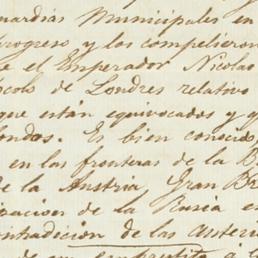 uardias Municipales en
rogreso y los compelieron
e el Emperador Nicolas
ocolo de Londres relativo
que están equivocados y q
ondos. Es bien conocid
en las fronteras de la B
de la Austria, Gran Br
izacion de la Rusia en
ontradicion de las anteri